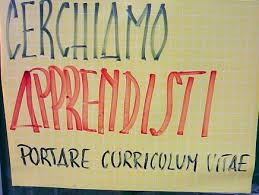 CERCHIAMO
APPRENDISTI
PORTARE CURRICOLUM VITAE